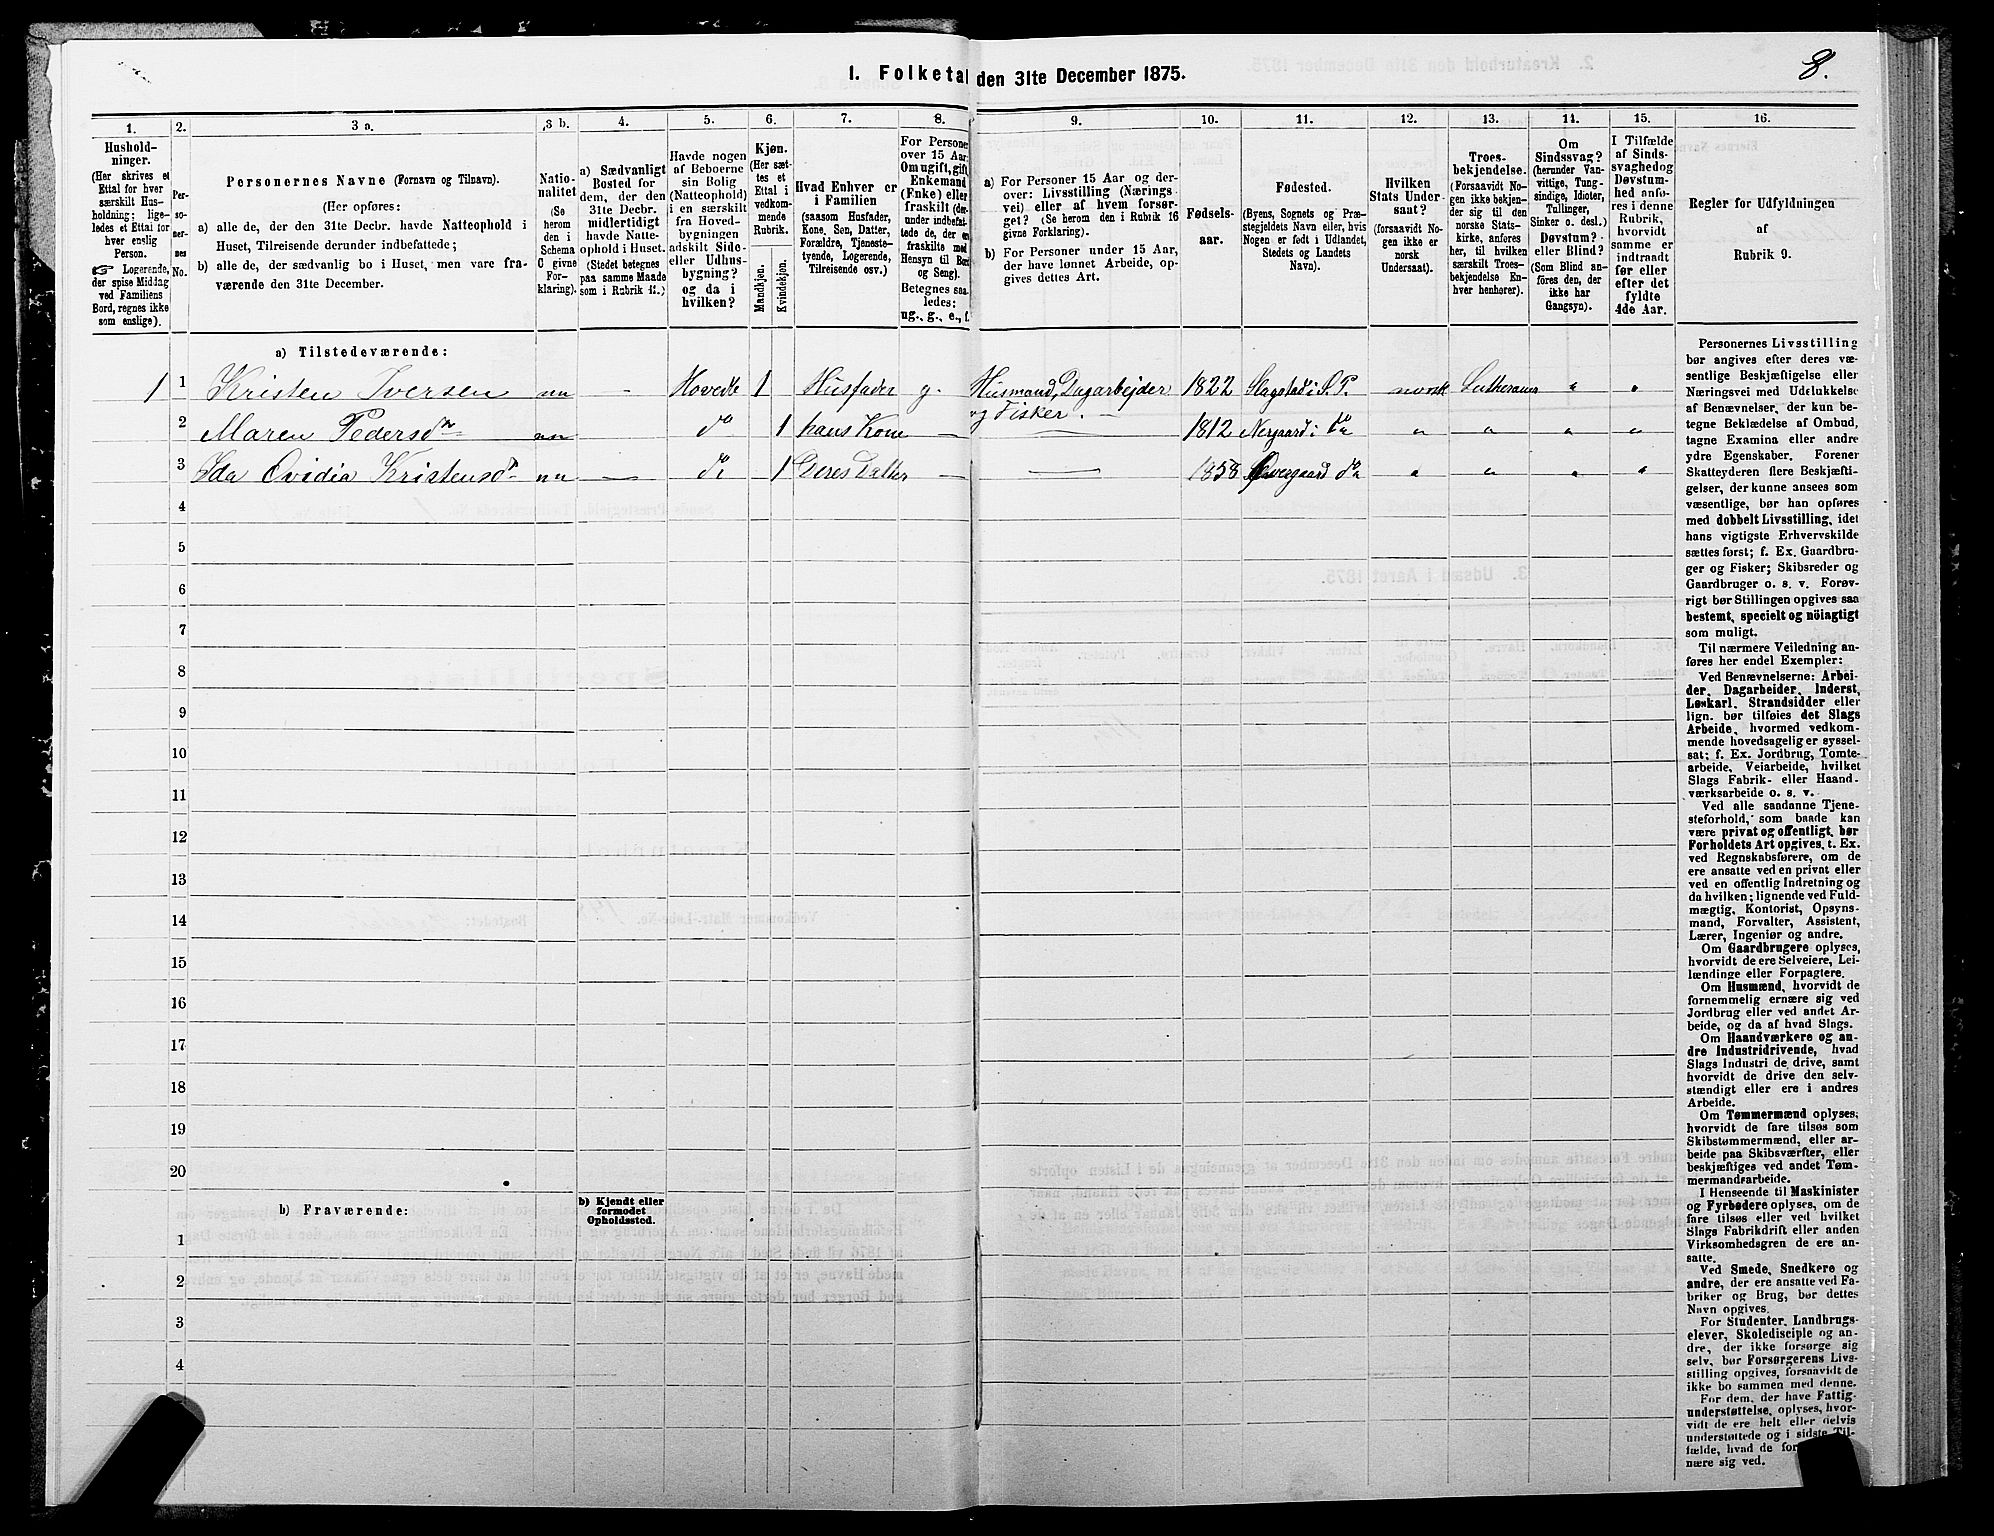 8.
1. Folketal den 31te December 1875.
1.
2.
3 a.
3 b.
4.
5.
6.
7.
8.
9.
10.
11.
12.
13.
14.
15.
16.
Hushold-
ninger.
(Her skrives et
Ettal for hver
særskilt Hus-
holdning; lige-
ledes et Ettal for
hver enslig
Person.
☞ Logerende,
der spise Middag
ved Familiens
Bord, regnes ikke
som enslige).
Per-
so-
ner-
nes
No.
Personernes Navne (Fornavn og Tilnavn).
(Her opføres:
a) alle de, der den 31te Decbr. havde Natteophold i
Huset, Tilreisende derunder indbefattede;
b) alle de, der sædvanlig bo i Huset, men vare fra-
værende den 31te December.
Natio-
nalitet
(Se
herom
den i
Schema
C givne
For-
klaring).
a) Sædvanligt
Bosted for
dem, der den
31te Decbr.
midlertidigt
havde Natte-
ophold i Huset.
(Stedet betegnes
paa samme Maade
som i Rubrik 11.)
Havde nogen
af Beboerne
sin Bolig
(Natteophold)
i en særskilt
fra Hoved-
bygningen
adskilt Side-
eller Udhus-
bygning?
og da i
hvilken?
Kjøn.
(Her sæt-
tes et
Ettal i
vedkom-
mende
Rubrik.
Mandkjøn.
Kvindekjøn.
Hvad Enhver er
i Familien
(saasom Husfader,
Kone, Søn, Datter,
Forældre, Tjeneste-
tyende, Logerende,
Tilreisende osv.)
For Personer
over 15 Aar:
Om ugift, gift,
Enkemand
(Enke) eller
fraskilt (der-
under indbefat-
tede de, der ere
fraskilte med
Hensyn til Bord
og Seng).
Betegnes saa-
ledes:
ug., g., e., f.
a) For Personer 15 Aar og der-
over: Livsstilling (Nærings-
vei) eller af hvem forsør-
get? (Se herom den i Rubrik 16
givne Forklaring).
b) For Personer under 15 Aar,
der have lønnet Arbeide, op-
gives dettes Art.
Fødsels-
aar.
Fødested.
(Byens, Sognets og Præ-
stegjeldets Navn eller, hvis
Nogen er født i Udlandet,
Stedets og Landets
Navn).
Hvilken
Stats Under-
saat?
(forsaavidt No-
gen ikke er
norsk
Undersaat).
Troes-
bekjendelse.
(Forsaavidt No-
gen ikke bekjen-
der sig til den
norske Stats-
kirke, anføres
her, til hvilken
særskilt Troes-
bekjendelse En-
hver henhører).
Om
Sindssvag?
(herunder Van-
vittige, Tung-
sindige, Idioter,
Tullinger,
Sinker o. desl.)
Døvstum?
eller Blind?
(Som Blind an-
føres den, der
ikke har
Gangsyn).
I Tilfælde
af Sinds-
svaghed og
Døvstum-
hed anfø-
res i denne
Rubrik,
hvorvidt
samme er
indtraadt
før eller
efter det
fyldte
4de Aar.
Regler for Udfyldningen
af
Rubrik 9.
a) Tilstedeværende:
1 1 Kristen Iversen nn — Hovedb 1 Husfader g. Husmand, Dagarbejder og Fisker. — 1822 Slagstad i S. P. norsk Lutheraner " "
2 Maren Pedersdtr nn do 1 hans Kone — — 1812 Nergaard i do " " " "
3 Ida Ovidia Kristensdr nn — do 1 Deres Datter — — 1858 Øvergaard do " " " "
4
5
6
7
8
9
10
11
12
13
14
15
16
17
18
19
20
b) Fraværende:
b) Kjendt eller
formodet
Opholdssted.
1
2
3
4
Personernes Livsstilling
bør angives efter deres væ-
sentlige Beskjæftigelse eller
Næringsvei med Udelukkelse
af Benævnelser, der kun be-
tegne Beklædelse af Ombud,
tagne Examina eller andre
ydre Egenskaber. Forener
Skatteyderen flere Beskjæfti-
gelser, der kunne ansees som
væsentlige, bør han opføres
med dobbelt Livsstilling, idet
hans vigtigste Erhvervskilde
sættes først; f. Ex. Gaardbru-
ger og Fisker; Skibsreder og
Gaardbruger o. s. v. Forøv-
rigt bør Stillingen opgives saa
bestemt, specielt og nöiagtigt
som muligt.
Til nærmere Veiledning an-
føres her endel Exempler:
Ved Benævnelserne: Arbei-
der, Dagarbeider, Inderst,
Løskarl, Strandsidder eller
lign. bør tilføies det Slags
Arbeide, hvormed vedkom-
mende hovedsagelig er syssel-
sat; f. Ex. Jordbrug, Tomte-
arbeide, Veiarbeide, hvilket
Slags Fabrik- eller Haand-
værksarbeide o. s. v.
Ved alle saadanne Tjene-
steforhold, som baade kan
være privat og offentligt, bør
Forholdets Art opgives, t. Ex.
ved Regnskabsførere, om de
ere ansatte ved en privat eller
ved en offentlig Indretning og
da hvilken; lignende ved Fuld-
mægtig, Kontorist, Opsyns-
mand, Forvalter, Assistent,
Lærer, Ingeniør og andre.
Om Gaardbrugere oplyses,
hvorvidt de ere Selveiere, Lei-
lændinge eller Forpagtere.
Om Husmænd, hvorvidt de
fornemmelig ernære sig ved
Jordbrug eller ved andet Ar-
beide, og da af hvad Slags.
Om Haandværkere og an-
dre Industridrivende, hvad
Slags Industri de drive, samt
hvorvidt de drive den selv-
stændigt eller ere i andres
Arbeide.
Om Tømmermænd oplyses,
hvorvidt de fare tilsøs som
Skibstømmermænd, eller ar-
beide paa Skibsværfter, eller
beskjæftiges ved andet Tøm-
mermandsarbeide.
I Henseende til Maskinister
og Fyrbødere oplyses, om de
fare tilsøs eller ved hvilket
Slags Fabrikdrift eller anden
Virksomhedsgren de ere an-
satte.
Ved Smede, Snedkere og
andre, der ere ansatte ved Fa-
briker og Brug, bør dettes
Navn opgives.
For Studenter, Landbrugs-
elever, Skoledisciple og an-
dre, der ikke forsørge sig
selv, bør Forsørgerens Livs-
stilling opgives, forsaavidt de
ikke bo sammen med denne.
For dem, der have Fattig-
understøttelse, oplyses, hvor-
vidt de ere helt eller delvis
understøttede og i sidste Til-
fælde, hvad de for
nære sig ved.